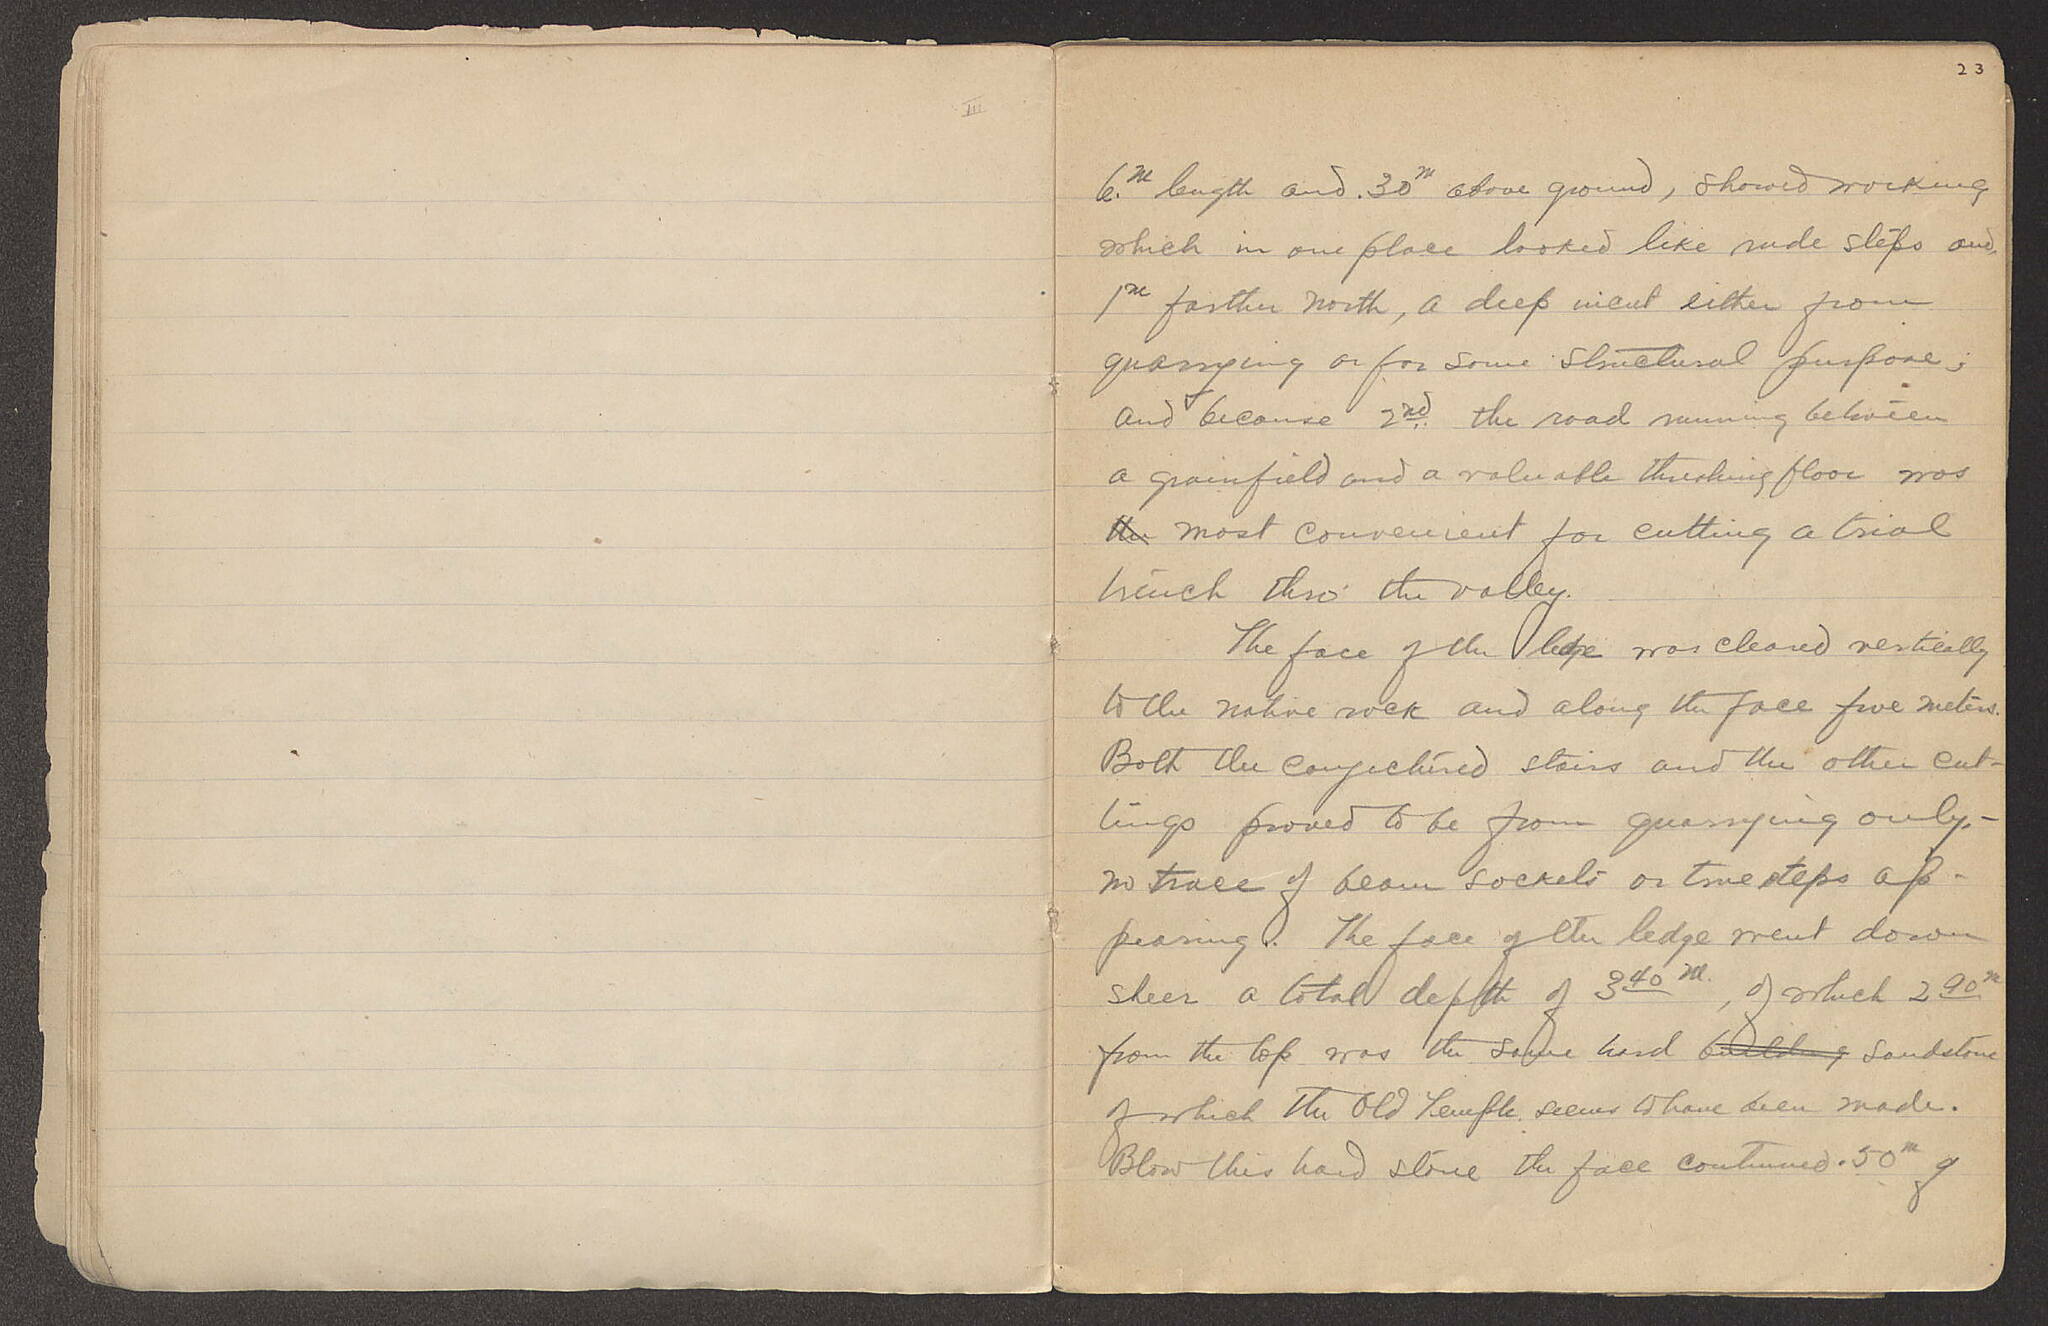 III
23
6.m length and .30m above ground, showed working
which in one place looked like rude steps and,
1m farther north, a deep incut either from
quarrying or for some structural purpose;
and because 2nd. the road running between
a grainfield and a valuable threshing floor was
the most convenient for cutting a trial
trench thro' the valley.
The face of the ledge was cleared vertically
to the native rock and along the face five meters.
Both the conjectured stairs and the other cut-
tings proved to be from quarrying only,-
no trace of beam sockets or true steps ap-
pearing. The face of the ledge went down
sheer a total depth of 3 40 m., of which 2 90 m
from the top was the same hard building sandstone
of which the Old Temple seems to have been made.
Blow this hard stone the face continued .50m of